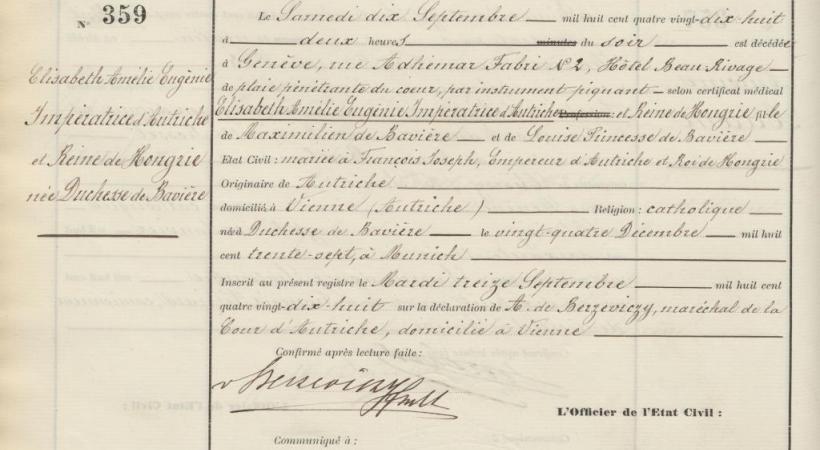 N° 359
Elisabeth Amélie Eugénie
Impératrice d'Autriche
et Reine de Hongrie
née Duchesse de Bavière
Le Samedi dix Septembre mil huit cent quatre vingt-dix-huit
à deux heures minutes du soir est décédée
à Genève, rue Adhémar Fabri N° 2, Hôtel Beau-Rivage
de plaie pénétrante du coeur, par instrument piquant selon certificat médical
Elisabeth Amélie Eugénie, Impératrice d'Autriche Profession: et Reine de Hongrie fille
de Maximilien de Bavière et de Louise Princesse de Bavière
Etat Civil: mariée à François Joseph, Empereur d'Autriche et Roi de Hongrie
Originaire de Autriche
domiciliée à Vienne (Autriche) Religion: catholique
née Duchesse de Bavière le vingt-quatre Décembre mil huit
cent trente-sept, à Munich
Inscrit au présent registre le Mardi treize Septembre mil huit cent
quatre vingt-dix-huit sur la déclaration de A. de Berzeviczy, maréchal de la
Cour d'Autriche, domicilié à Vienne
Confirmé après lecture faite:
v Berzeviczy
L'Officier de l'Etat Civil:
Communiqué à: